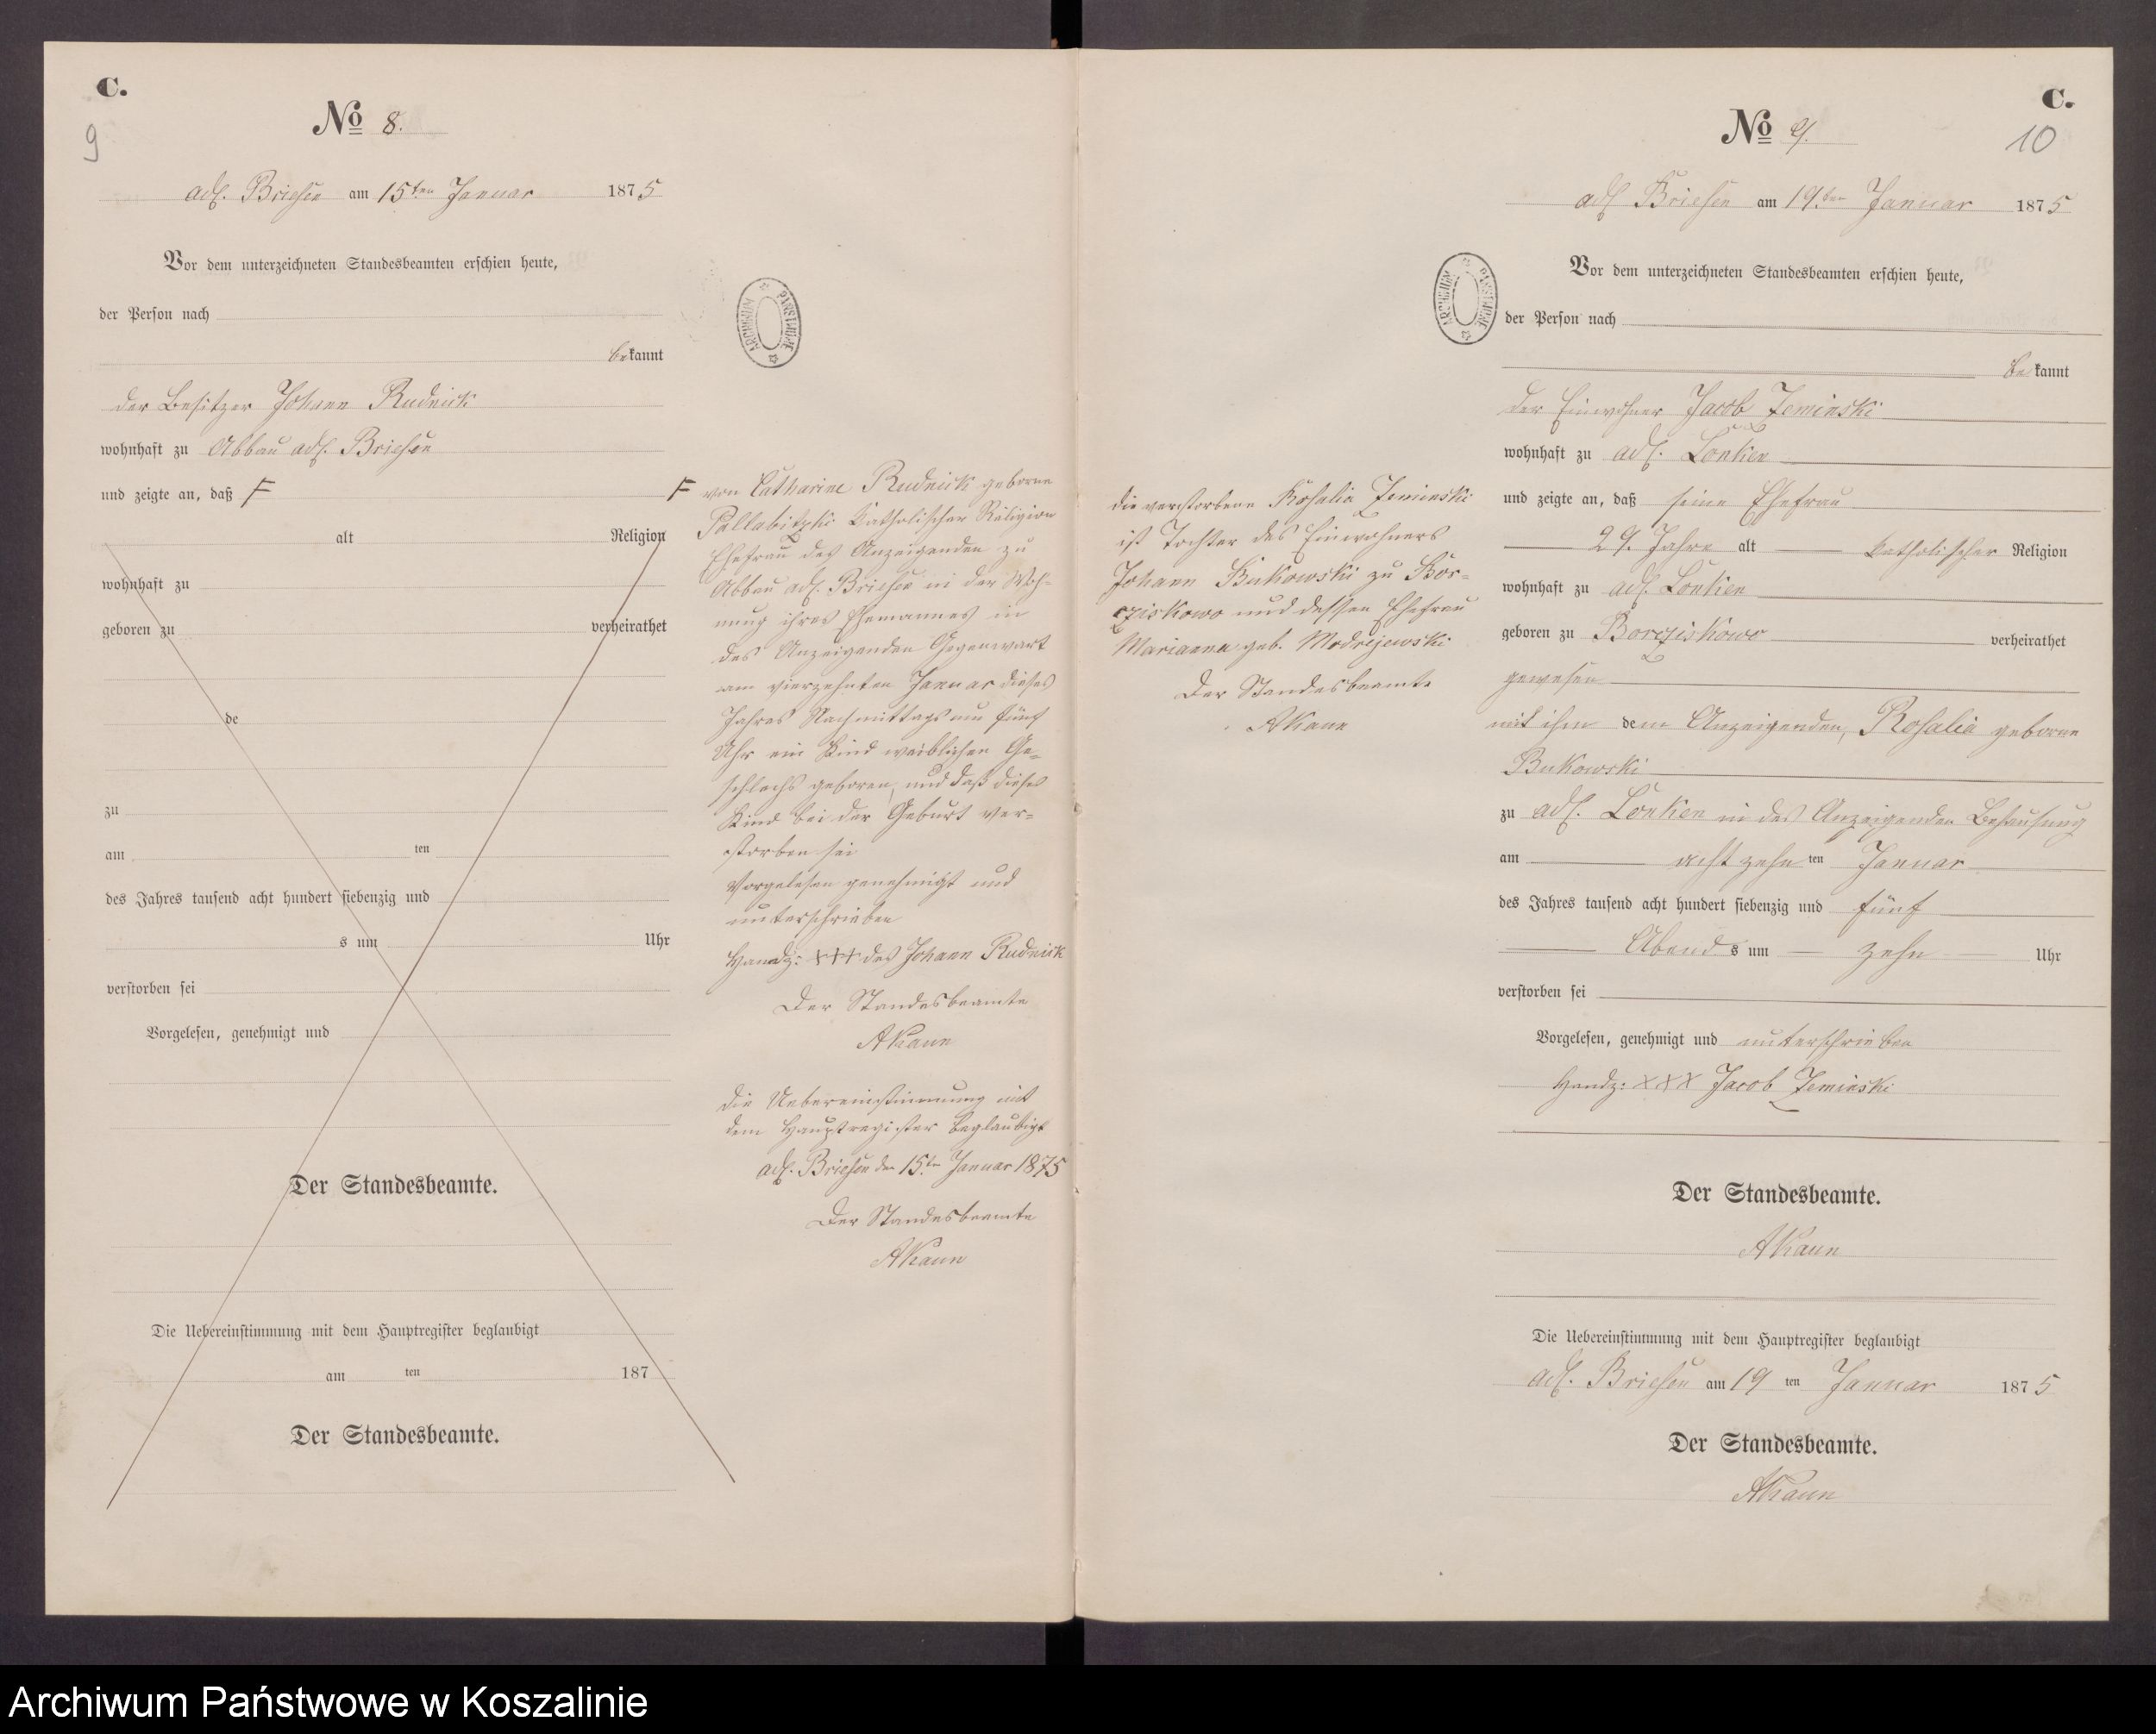 C.
9
No 8.
adl. Briesen am 15ten Januar 1875
Vor dem unterzeichneten Standesbeamten erschien heute,
der Person nach
bekannt
der Besitzer Johann Rudnick
wohnhaft zu Abbau adl. Briesen
und zeigte an, daß F
alt Religion
wohnhaft zu
geboren zu verheirathet
de
zu
am ten
des Jahres tausend acht hundert siebenzig und
s um Uhr
verstorben sei
Vorgelesen, genehmigt und
Der Standesbeamte.
Die Uebereinstimmung mit dem Hauptregister beglaubigt
am ten 187
Der Standesbeamte.
ARCHIWUM PAŃSTWOWE
F von Catharine Rudnick geborne
Pallubitzki katholischer Religion
Ehefrau des Anzeigenden zu
Abbau adl. Briesen in der Woh-
nung ihres Ehemannes in
des Anzeigenden Gegenwart
am vierzehnten Januar dieses
Jahres Nachmittags um fünf
Uhr ein Kind weiblichen Ge-
schlechs geboren, und daß dieses
Kind bei der Geburt ver-
storben sei
Vorgelesen genehmigt und
unterschrieben
Handz: +++ des Johann Rudnick
Der Standesbeamte
AKaun
die Uebereinstimmung mit
dem Hauptregister beglaubigt
adl. Briesen den 15ten Januar 1875
Der Standesbeamte
AKaun
C.
10
No 9.
adl Briesen am 19.ten Januar 1875
Vor dem unterzeichneten Standesbeamten erschien heute,
der Person nach
bekannt
der Einwohner Jacob Zeminski
wohnhaft zu adl. Lonken
und zeigte an, daß seine Ehefrau
29. Jahre alt katholischer Religion
wohnhaft zu adl. Lonken
geboren zu Borcziskowo verheirathet
gewesen
mit ihm dem Anzeigenden, Rosalia geborne
Bukowski
zu adl. Lonken in des Anzeigenden Behausung
am achtzehnten Januar
des Jahres tausend acht hundert siebenzig und fünf
Abends um zehn Uhr
verstorben sei
Vorgelesen, genehmigt und unterschrieben
Handz: XXX Jacob Zeminski
Der Standesbeamte.
AKaun
Die Uebereinstimmung mit dem Hauptregister beglaubigt
adl. Briesen am 19 ten Januar 1875
Der Standesbeamte.
AKaun
ARCHIWUM PAŃSTWOWE
die verstorbene Rosalia Zeminski
ist Tochter des Einwohners
Johann Bukowski zu Bor-
cziskowo und dessen Ehefrau
Marianna geb. Modrejewski
Der Standesbeamte
AKaun
Archiwum Państwowe w Koszalinie